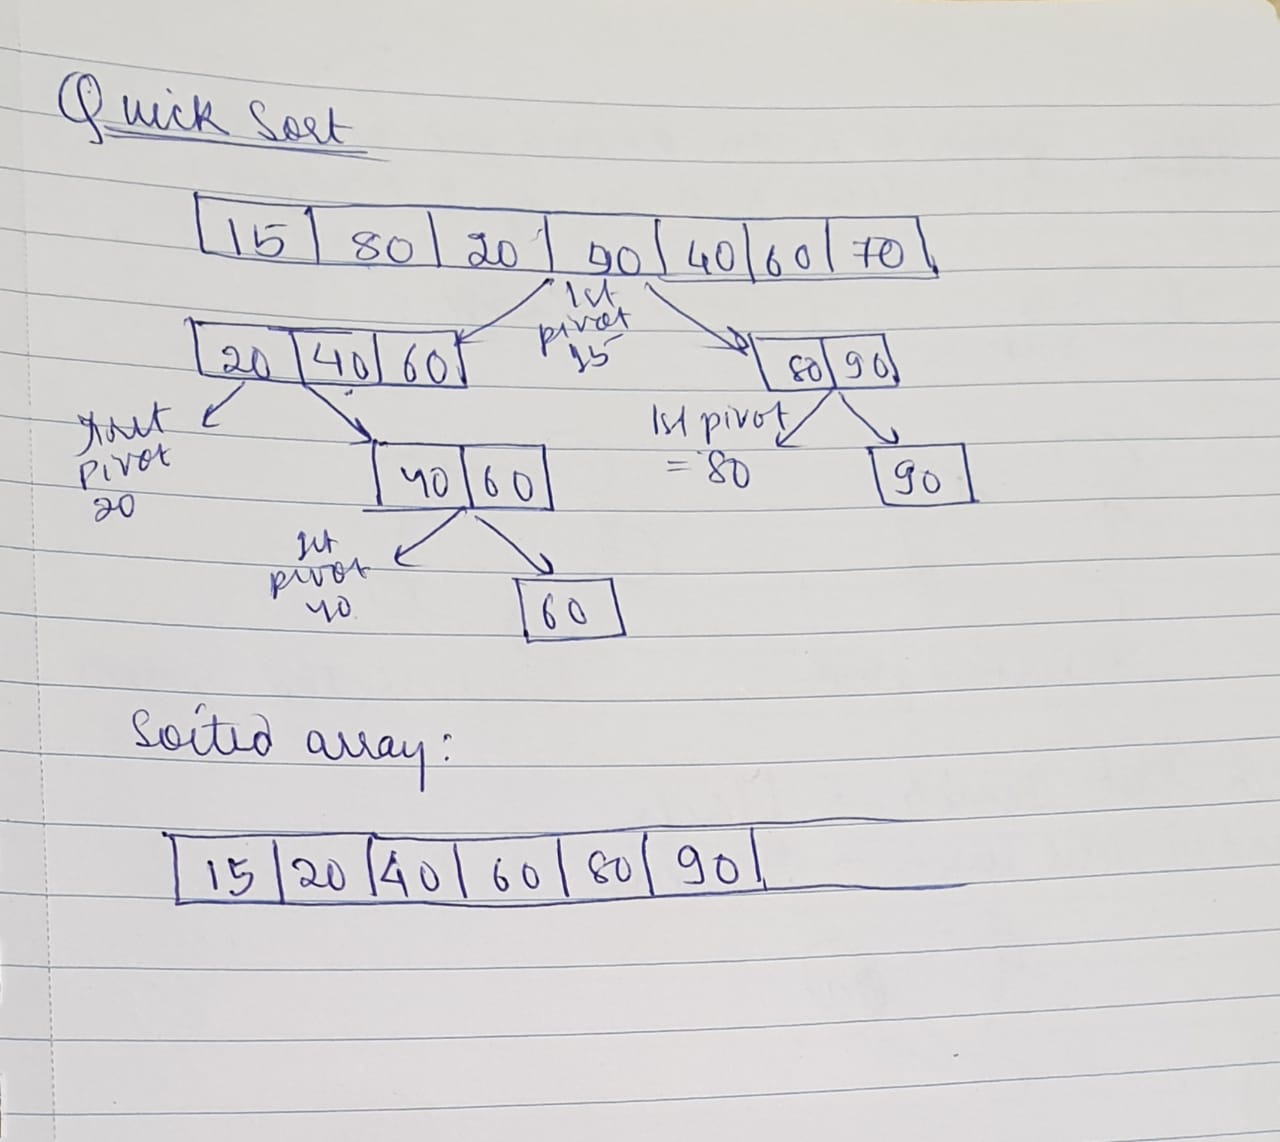 Quick Sort
15 80 20 90 40 60 70
1st
pivot
15
20 40 60
80 90
pivot
20
1st pivot
= 80
40 60
90
1st
pivot
40
60
Sorted array:
15 20 40 60 80 90